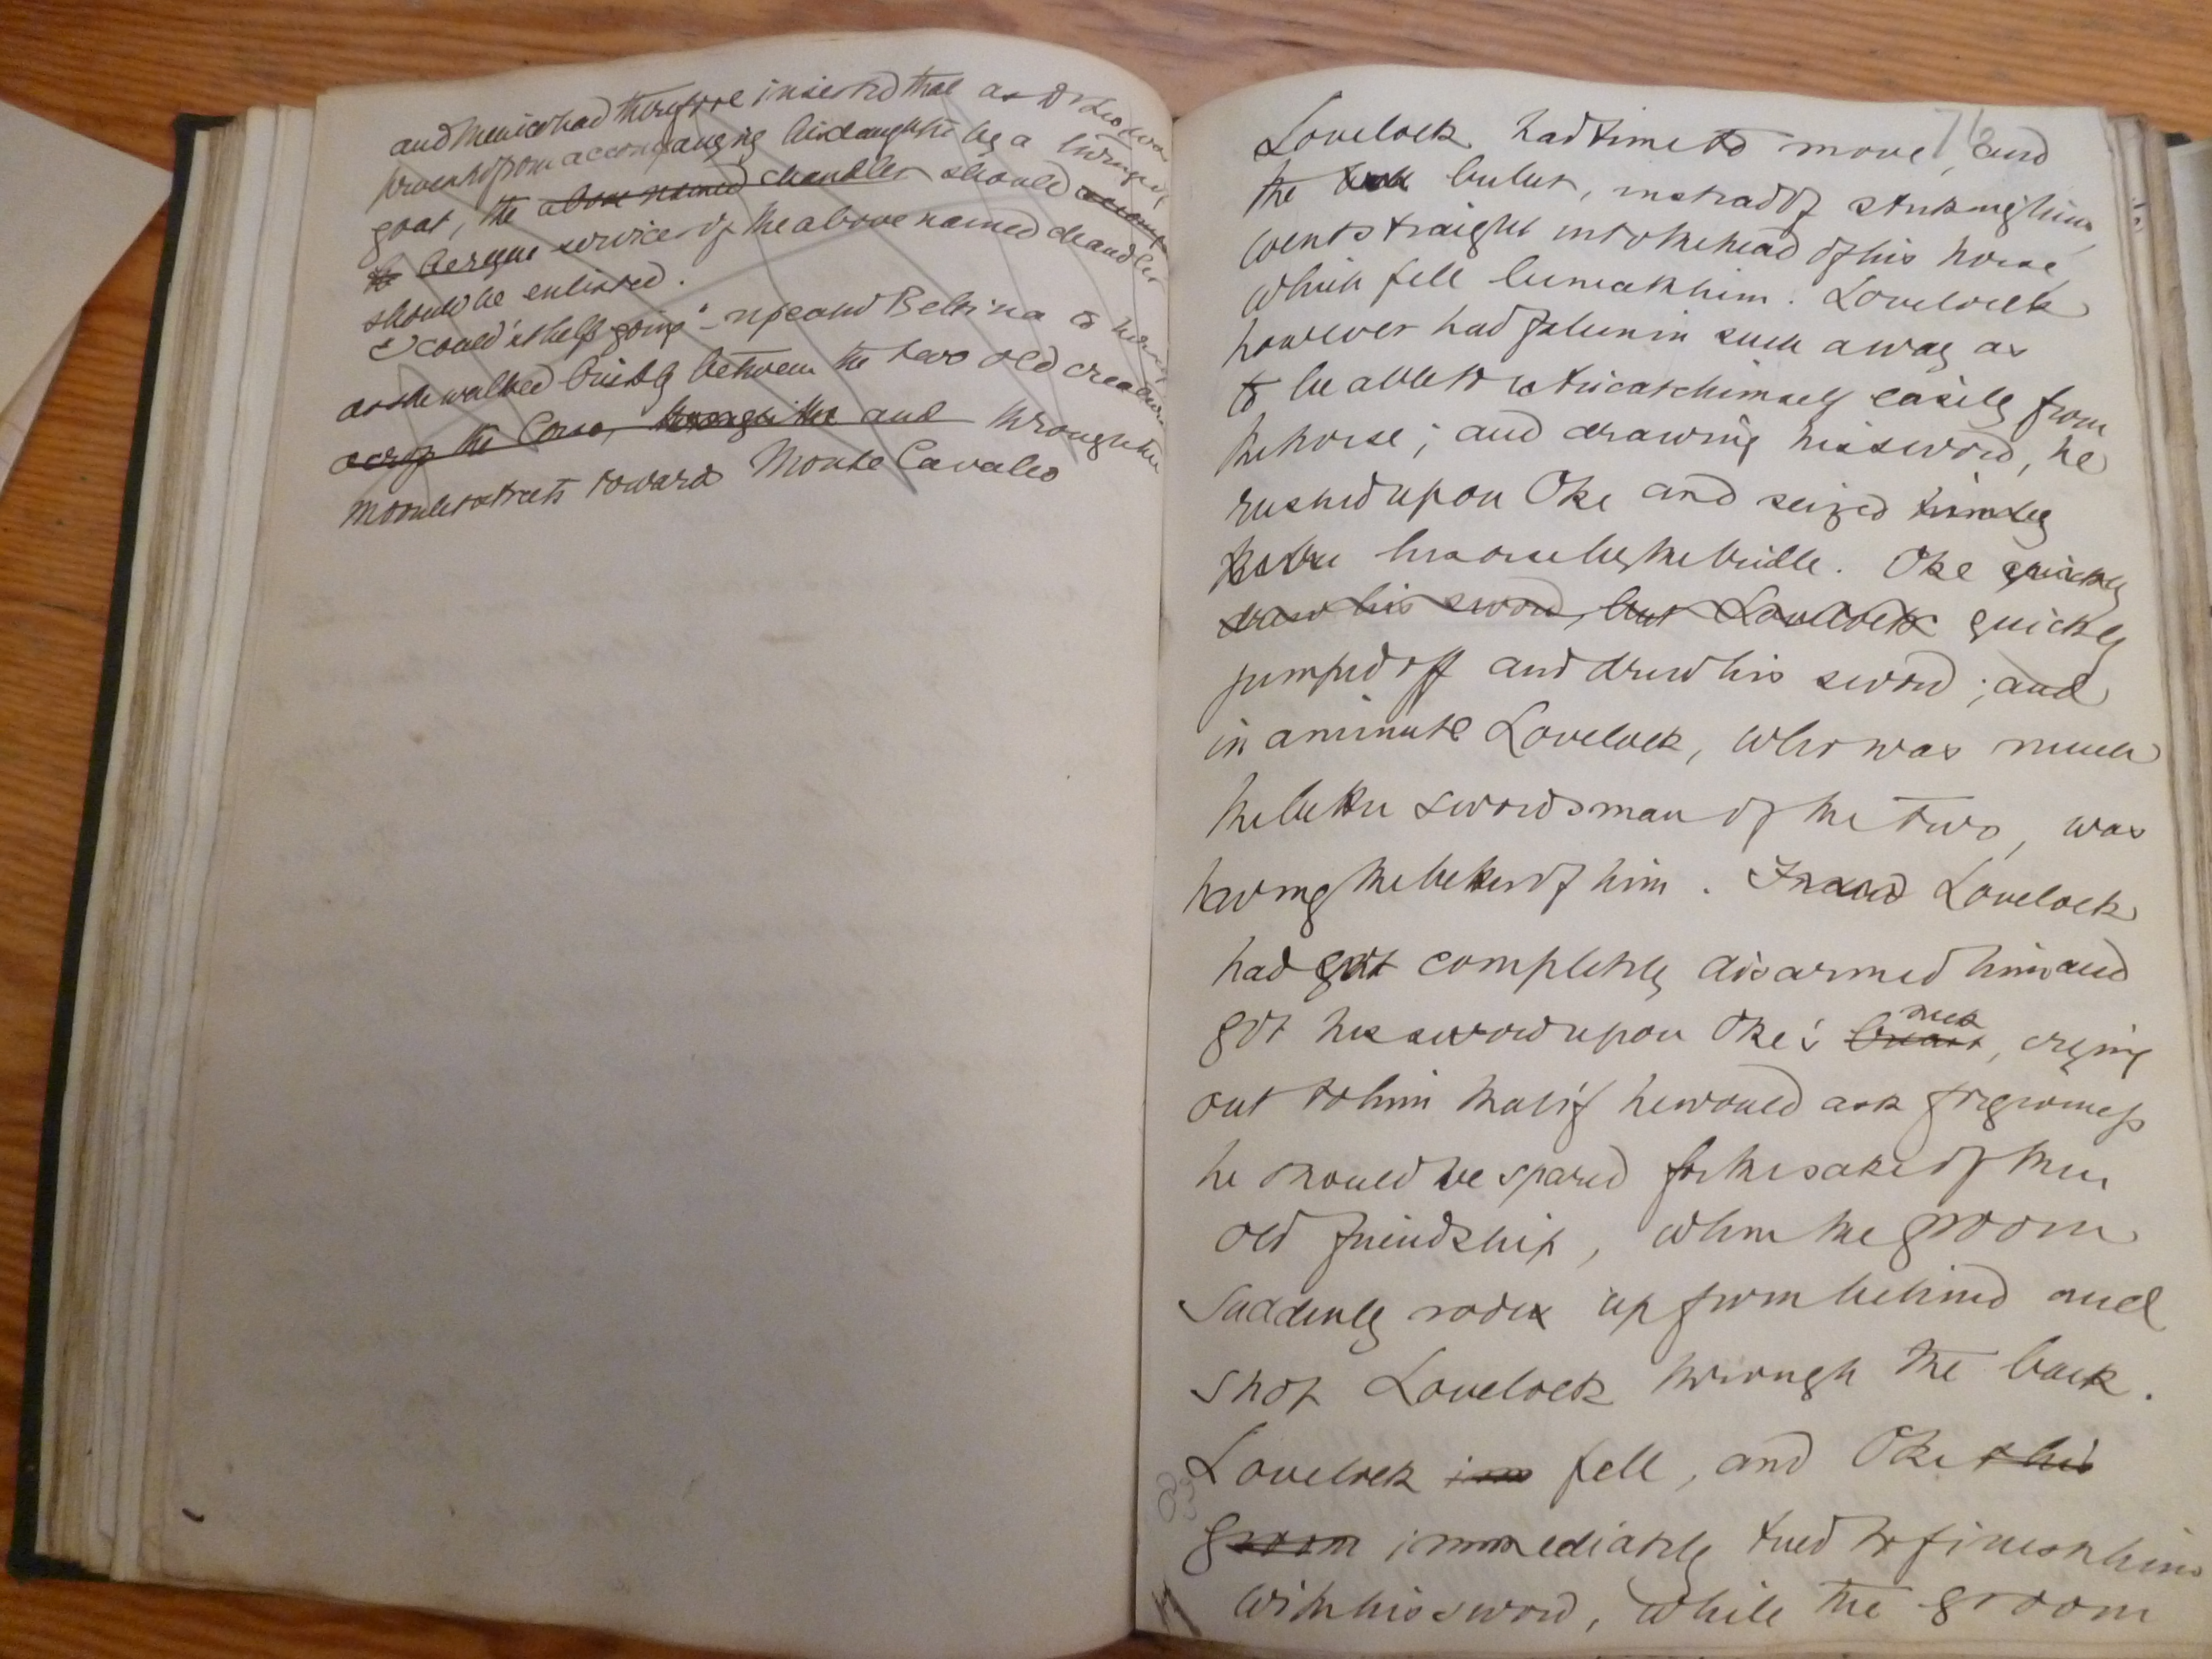 and Menico had therefore insisted that as
prevented from accompanying his daughter by a
goat, the above named chandler should
the Bergue service of the above named chandler
should be enlisted.
I could'nt help going" - and Bettina to
as she walked briskly between the two old creatures
across the Corso, through the and through the
streets toward Monte Cavallo
76
Lovelock had time to move, and
the bullet, instead of striking him,
went straight into the head of his horse,
which fell beneath him. Lovelock
however had fallen in such a way as
to be able to extricate himself easily from
the horse; and drawing his sword, he
rushed upon Oke and seized him by
his horse by the bridle. Oke quickly
draw his sword, but Lovelock quickly
jumped off and drew his sword; and
in a minute Lovelock, who was much
the better swordsman of the two, was
having the better of him. Lovelock
had got completely disarmed him and
got his sword upon Oke's breast neck, crying
out to him that if he would ask forgiveness
he should be spared for the sake of their
old friendship, when the groom
suddenly rode up from behind and
shot Lovelock through the back.
Lovelock im fell, and Oke & his
groom immediately tried to finish him
with his sword, while the groom